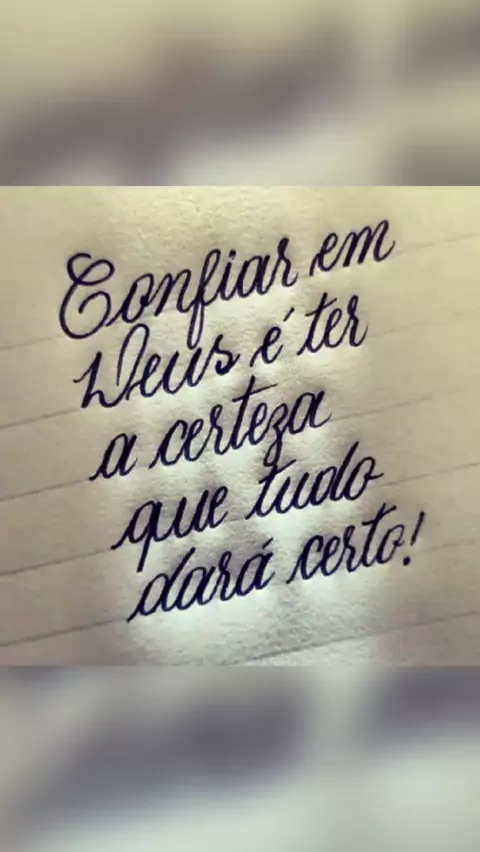 Confiar em
Deus é ter
a certeza
que tudo
dará certo!